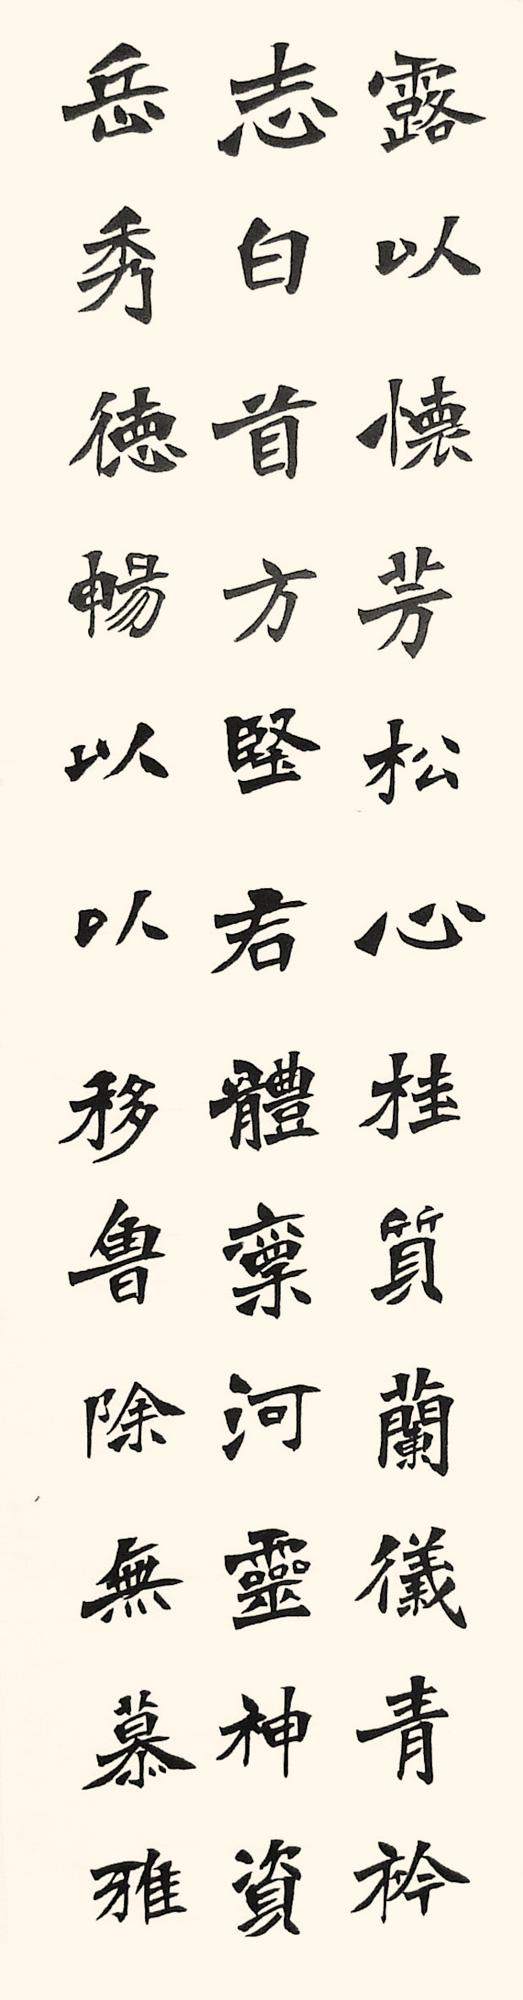 露以懷芳松心桂質蘭儀青衿
志白首方堅君體稟河靈神資
岳秀德暢以以移魯除無慕雅